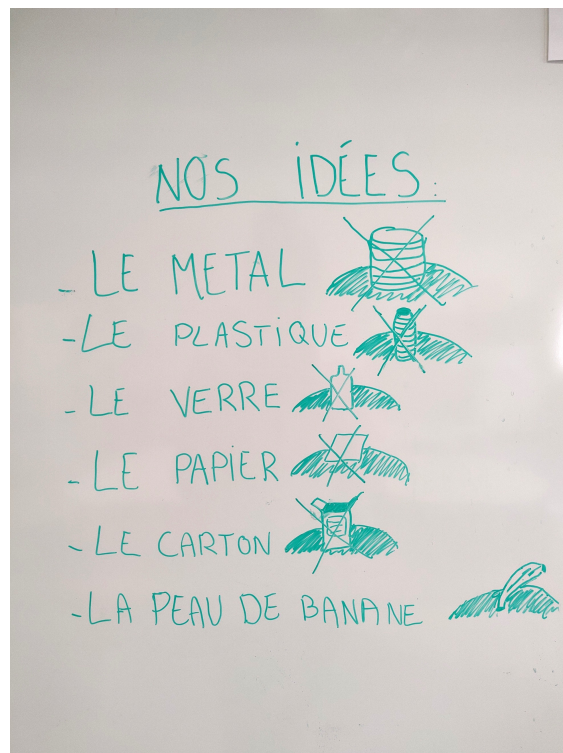 NOS IDÉES:
- LE METAL
- LE PLASTIQUE
- LE VERRE
- LE PAPIER
- LE CARTON
- LA PEAU DE BANANE